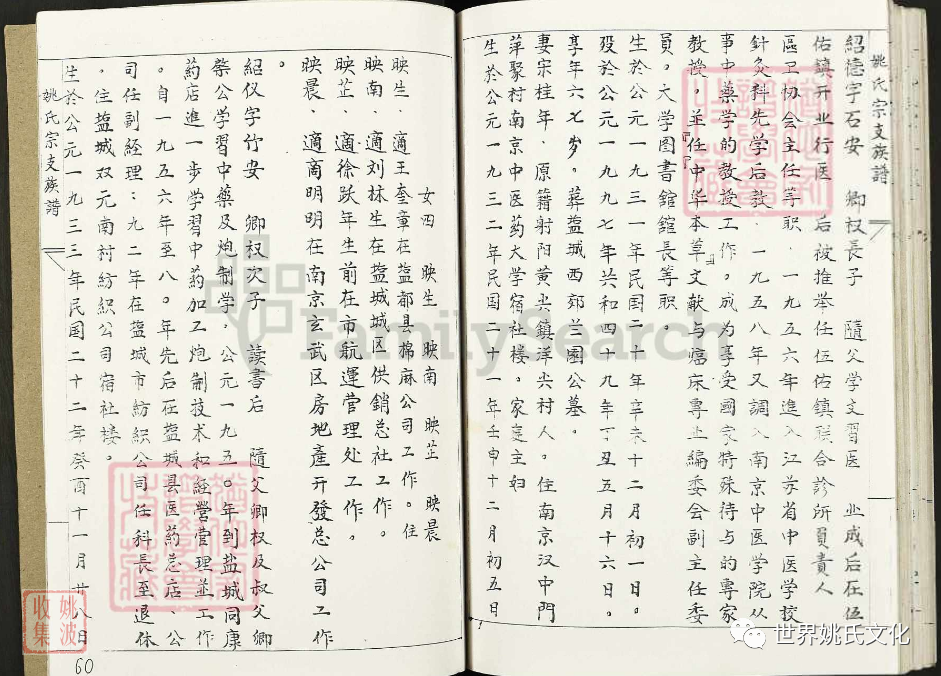 姚氏宗支族譜
紹德字石安　卿权長子　隨父学文習医　业成后在伍
佑鎮开业行医　后被推举任伍佑鎮联合診所負責人
區卫协会主任等职．一九五六年進入江苏省中医学校
針灸科先学后教．一九五八年又調入南京中医学院从
事中藥学的教授工作。成为享受國家特殊待与的專家
教授。並任『中华本草』文献与临床專业編委会副主任委
員。大学图書館館長等职。
生於公元一九三一年民国二十年辛未十二月初一日。
歿於公元一九九七年共和四十九年丁丑五月十六日。
享年六七岁。葬盐城西郊兰園公墓。
妻宋桂年．原籍射阳黄尖鎮洋尖村人。住南京汉中門
萍聚村南京中医药大学宿社楼。家庭主妇
生於公元一九三二年民国二十一年壬申十二月初五日
女四　映生　映南　映芷　映晨
映生、適王奎章在盐都县棉麻公司工作。住
映南、適刘林生在盐城城区供銷总社工作。
映芷、適徐跃年生前在市航運管理处工作。
映晨、適商明明在南京玄武区房地產开發总公司工作
。
紹仪字竹安　卿权次子　読書后　隨父卿权及叔父卿
桊公学習中藥及炮制学。公元一九五〇年到盐城同康
药店進一步学習中药加工炮制技术和經營管理並工作
。自一九五六年至八〇年先后在盐城县医药总店、公
司任副經理：九二年在盐城市紡織公司任科長至退休
。住盐城双元南村紡织公司宿社楼。
生於公元一九三三年民国二十二年癸酉十一月廿八日
姚氏宗支族譜
60
姚波
收集
FamilySearch
世界姚氏文化